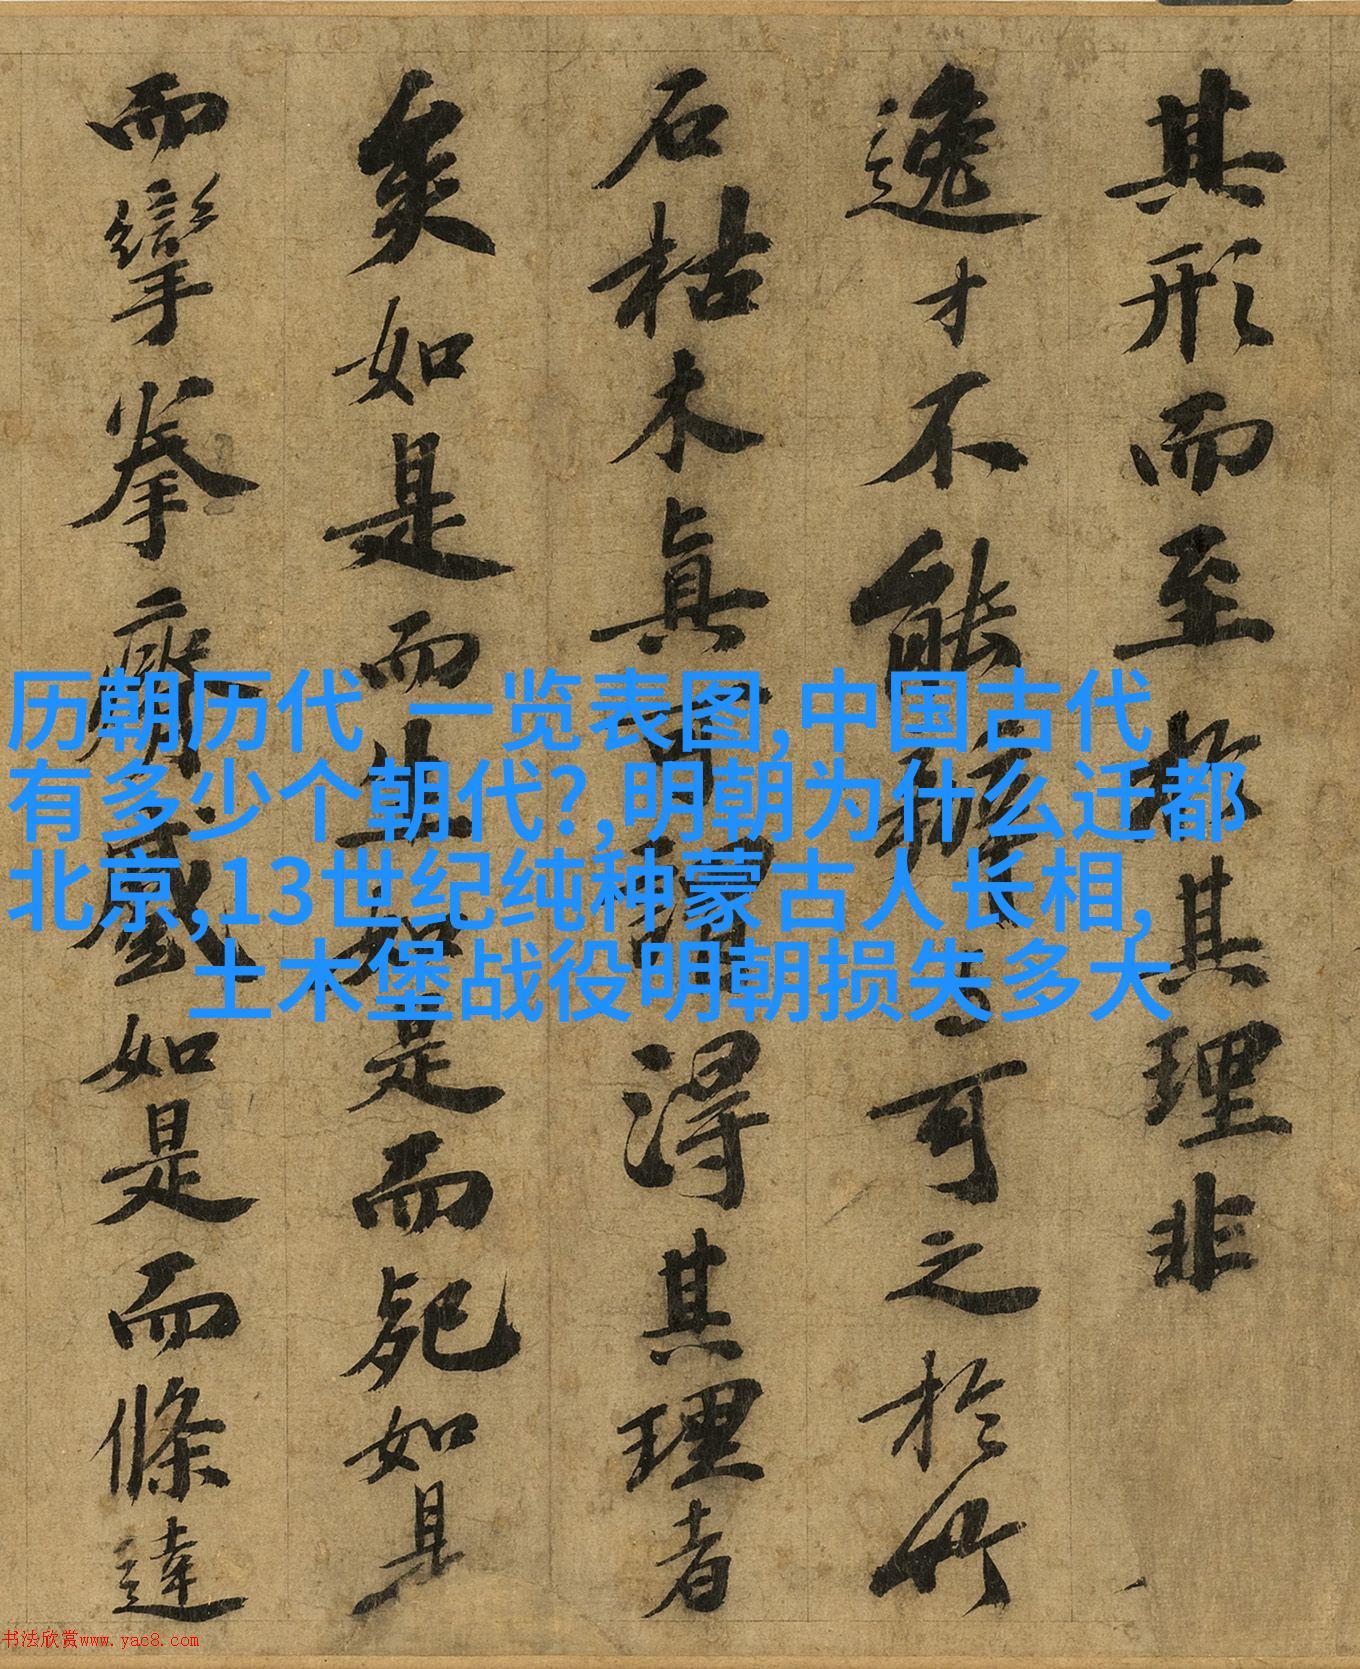 其形而至於其理非
逸才不能辨可之於竹
石枯木真可謂得其理者
矣如是而生如是而死如是
而攣拳瘠蹙如是而條達
历朝历代 一览表图,中国古代
有多少个朝代?,明朝为什么迁都
北京,13世纪纯种蒙古人长相,
土木堡战役明朝损失多大
书法欣赏www.yac8.com